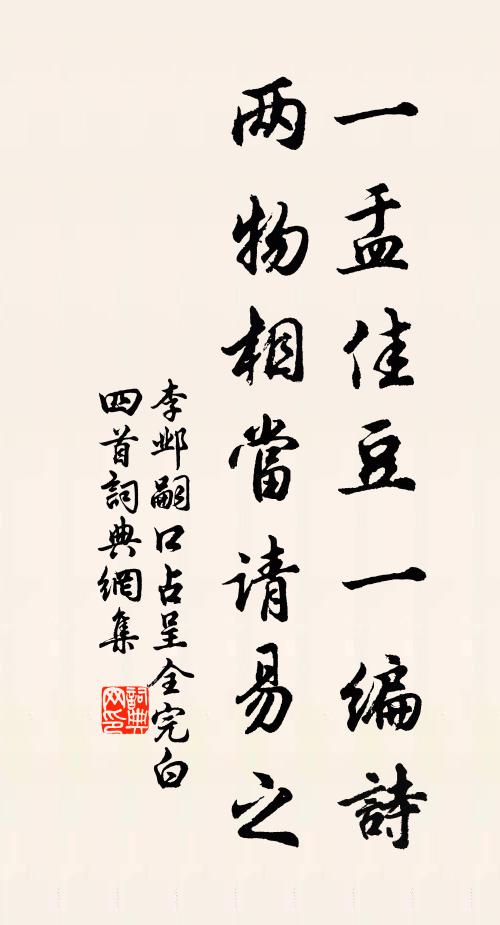 一盂佳豆一编詩
两物相當请易之
李邺嗣口占呈全完白
四首詞典網集
詞典网印